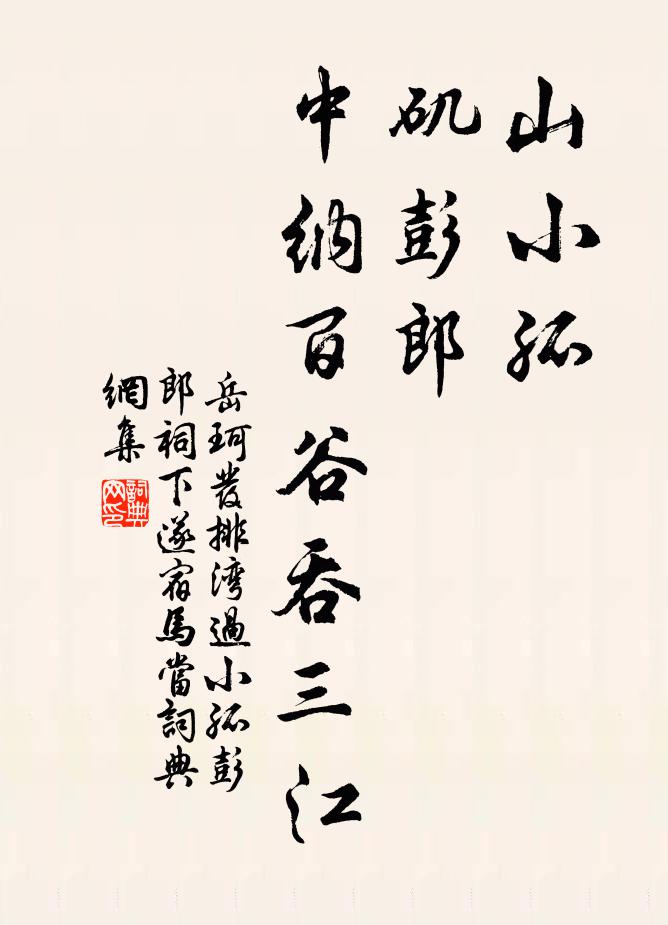 山小孤
矶彭郎
中纳百谷吞三江
岳珂發排湾過小孤彭
郎祠下遂宿馬當詞典
網集
詞典
网印